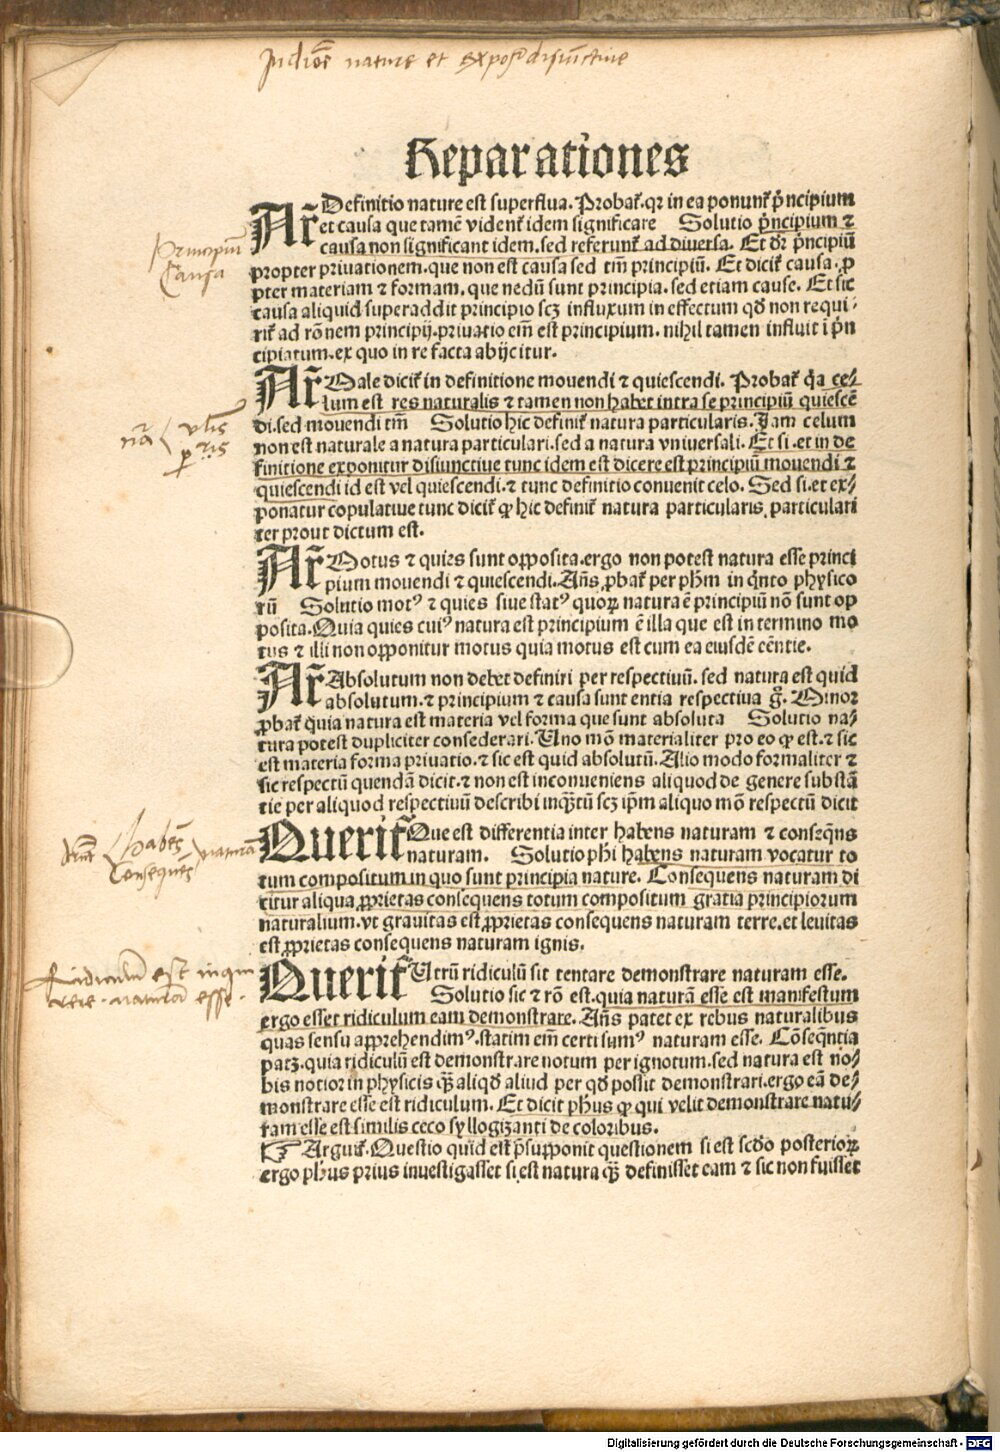 Reparationes
Ar̃ Definitio nature est superflua. Probat̃. qꝛ in ea ponunt̃ p̃ncipium
et causa que tamẽ vident̃ idem significare Solutio p̃ncipium ⁊
causa non significant idem. sed referunt̃ ad diuersa. Et dr̃ p̃ncipiũ
propter priuationem. que non est causa sed tm̃ principiũ. Et dicit̃ causa. ꝓ
pter materiam ⁊ formam, que nedũ sunt principia. sed etiam cause. Et sic
causa aliquid superaddit principio scʒ influxum in effectum qđ non requi
rit̃ ad rõnem principij. priuatio em̃ est principium. nihil tamen influit ĩ p̃n
cipiatum. ex quo in re facta abijcitur.
Ar̃ Male dicit̃ in definitione mouendi ⁊ quiescendi. Probat̃ q̃a ce⸗
lum est res naturalis ⁊ tamen non habet intra se principiũ quiescẽ
di. sed mouendi tm̃ Solutio hic definit̃ natura particularis. Jam celum
non est naturale a natura particulari. sed a natura vniuersali. Et si .et in de
finitione exponitur disiunctiue tunc idem est dicere est principiũ mouendi ⁊
quiescendi id est vel quiescendi. ⁊ tunc definitio conuenit celo. Sed si .et ex⸗
ponatur copulatiue tunc dicit̃ ꝙ hic definit̃ natura particularis particulari
ter prout dictum est.
Ar̃ Motus ⁊ quies sunt opposita. ergo non potest natura esse princi
pium mouendi ⁊ quiescendi. Añs ꝓbat̃ per phm̃ in q̃nto physico
rũ Solutio motꝰ ⁊ quies siue statꝰ quoꝝ natura ẽ principiũ nõ sunt op
posita. Quia quies cuiꝰ natura est principium ẽ illa que est in termino mo
tus ⁊ illi non opponitur motus quia motus est cum ea eiusdẽ eẽntie.
Ar̃ Absolutum non debet definiri per respectiuũ. sed natura est quid
absolutum. ⁊ principium ⁊ causa sunt entia respectiua g̊. Minor
ꝓbat̃ quia natura est materia vel forma que sunt absoluta Solutio na⸗
tura potest dupliciter consederari. Uno mõ materialiter pro eo ꝙ est. ⁊ sic
est materia forma priuatio. ⁊ sic est quid absolutũ. Alio modo formaliter ⁊
sic respectũ quendã dicit. ⁊ non est inconueniens aliquod de genere substã
tie per aliquod respectiuũ describi inqꝫtũ scʒ ip̃m aliquo mõ respectũ dicit
Querit̃ Que est differentia inter habens naturam ⁊ conseq̃ns
naturam. Solutio phi habens naturam vocatur to
tum compositum in quo sunt principia nature. Consequens naturam di
citur aliqua ꝓprietas consequens totum compositum gratia principiorum
naturalium. vt grauitas est ꝓprietas consequens naturam terre. et leuitas
est ꝓprietas consequens naturam ignis.
Querit̃ Utrũ ridiculũ sit tentare demonstrare naturam esse.
Solutio sic ⁊ rõ est. quia naturã esse est manifestum
ergo esset ridiculum eam demonstrare. Añs patet ex rebus naturalibus
quas sensu apprehendimꝰ. statim em̃ certi sumꝰ naturam esse. Cõseq̃ntia
patʒ. quia ridiculũ est demonstrare notum per ignotum. sed natura est no⸗
bis notior in physicis qꝫ aliqđ aliud per qđ possit demonstrari. ergo eã de⸗
monstrare esse est ridiculum. Et dicit phus ꝙ qui velit demonstrare natu⸗
ram esse est similis ceco syllogizanti de coloribus.
☞ Arguit̃. Questio quid est p̃supponit questionem si est scđo posterioꝝ
ergo phus prius inuestigasset si est natura qꝫ definisset eam ⁊ sic non fuisset
Principiũ
Causa
habẽs
Consequẽs
naturam
Ridiculũ est inqui
rere naturã esse.
Digitalisierung gefördert durch die Deutsche Forschungsgemeinschaft - DFG